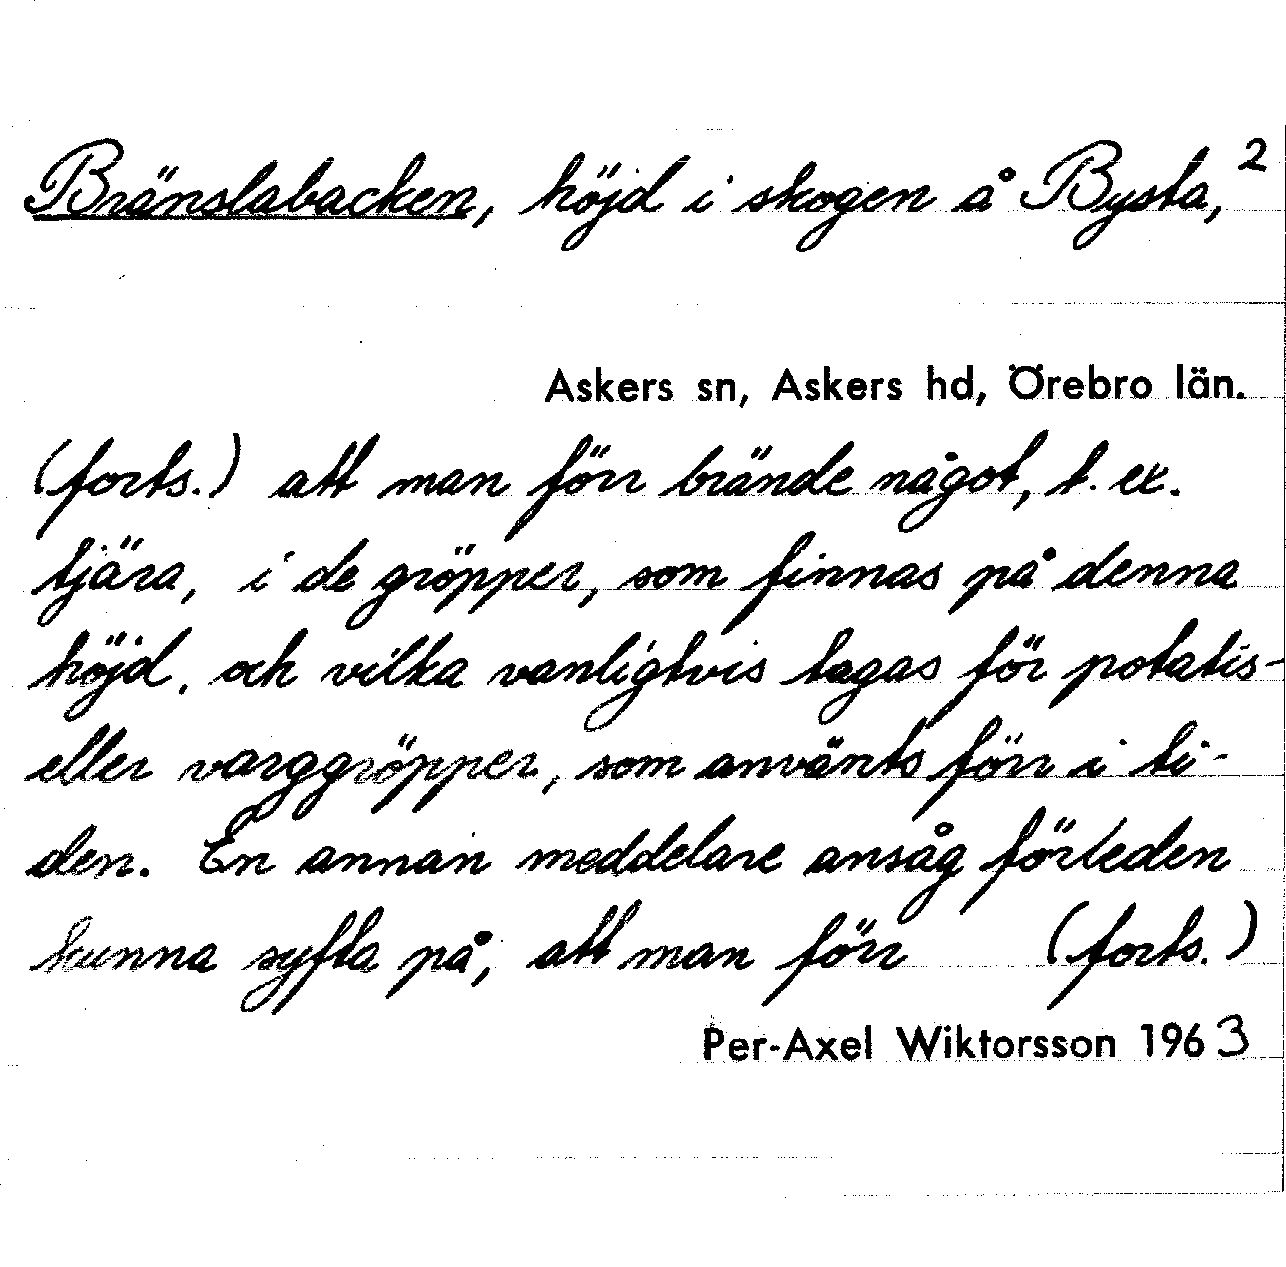 Bränslabacken, höjd i skogen å Bysta, 2
Askers sn, Askers hd, Örebro län.
(forts.) att man förr brände något, t. ex.
tjära, i de gröpper, som finnas på denna
höjd, och vilka vanligtvis tagas för potatis-
eller varggröpper, som använts förr i ti-
den. En annan meddelare ansåg förleden
kunna syfta på, att man förr (forts.)
Per-Axel Wiktorsson 1963